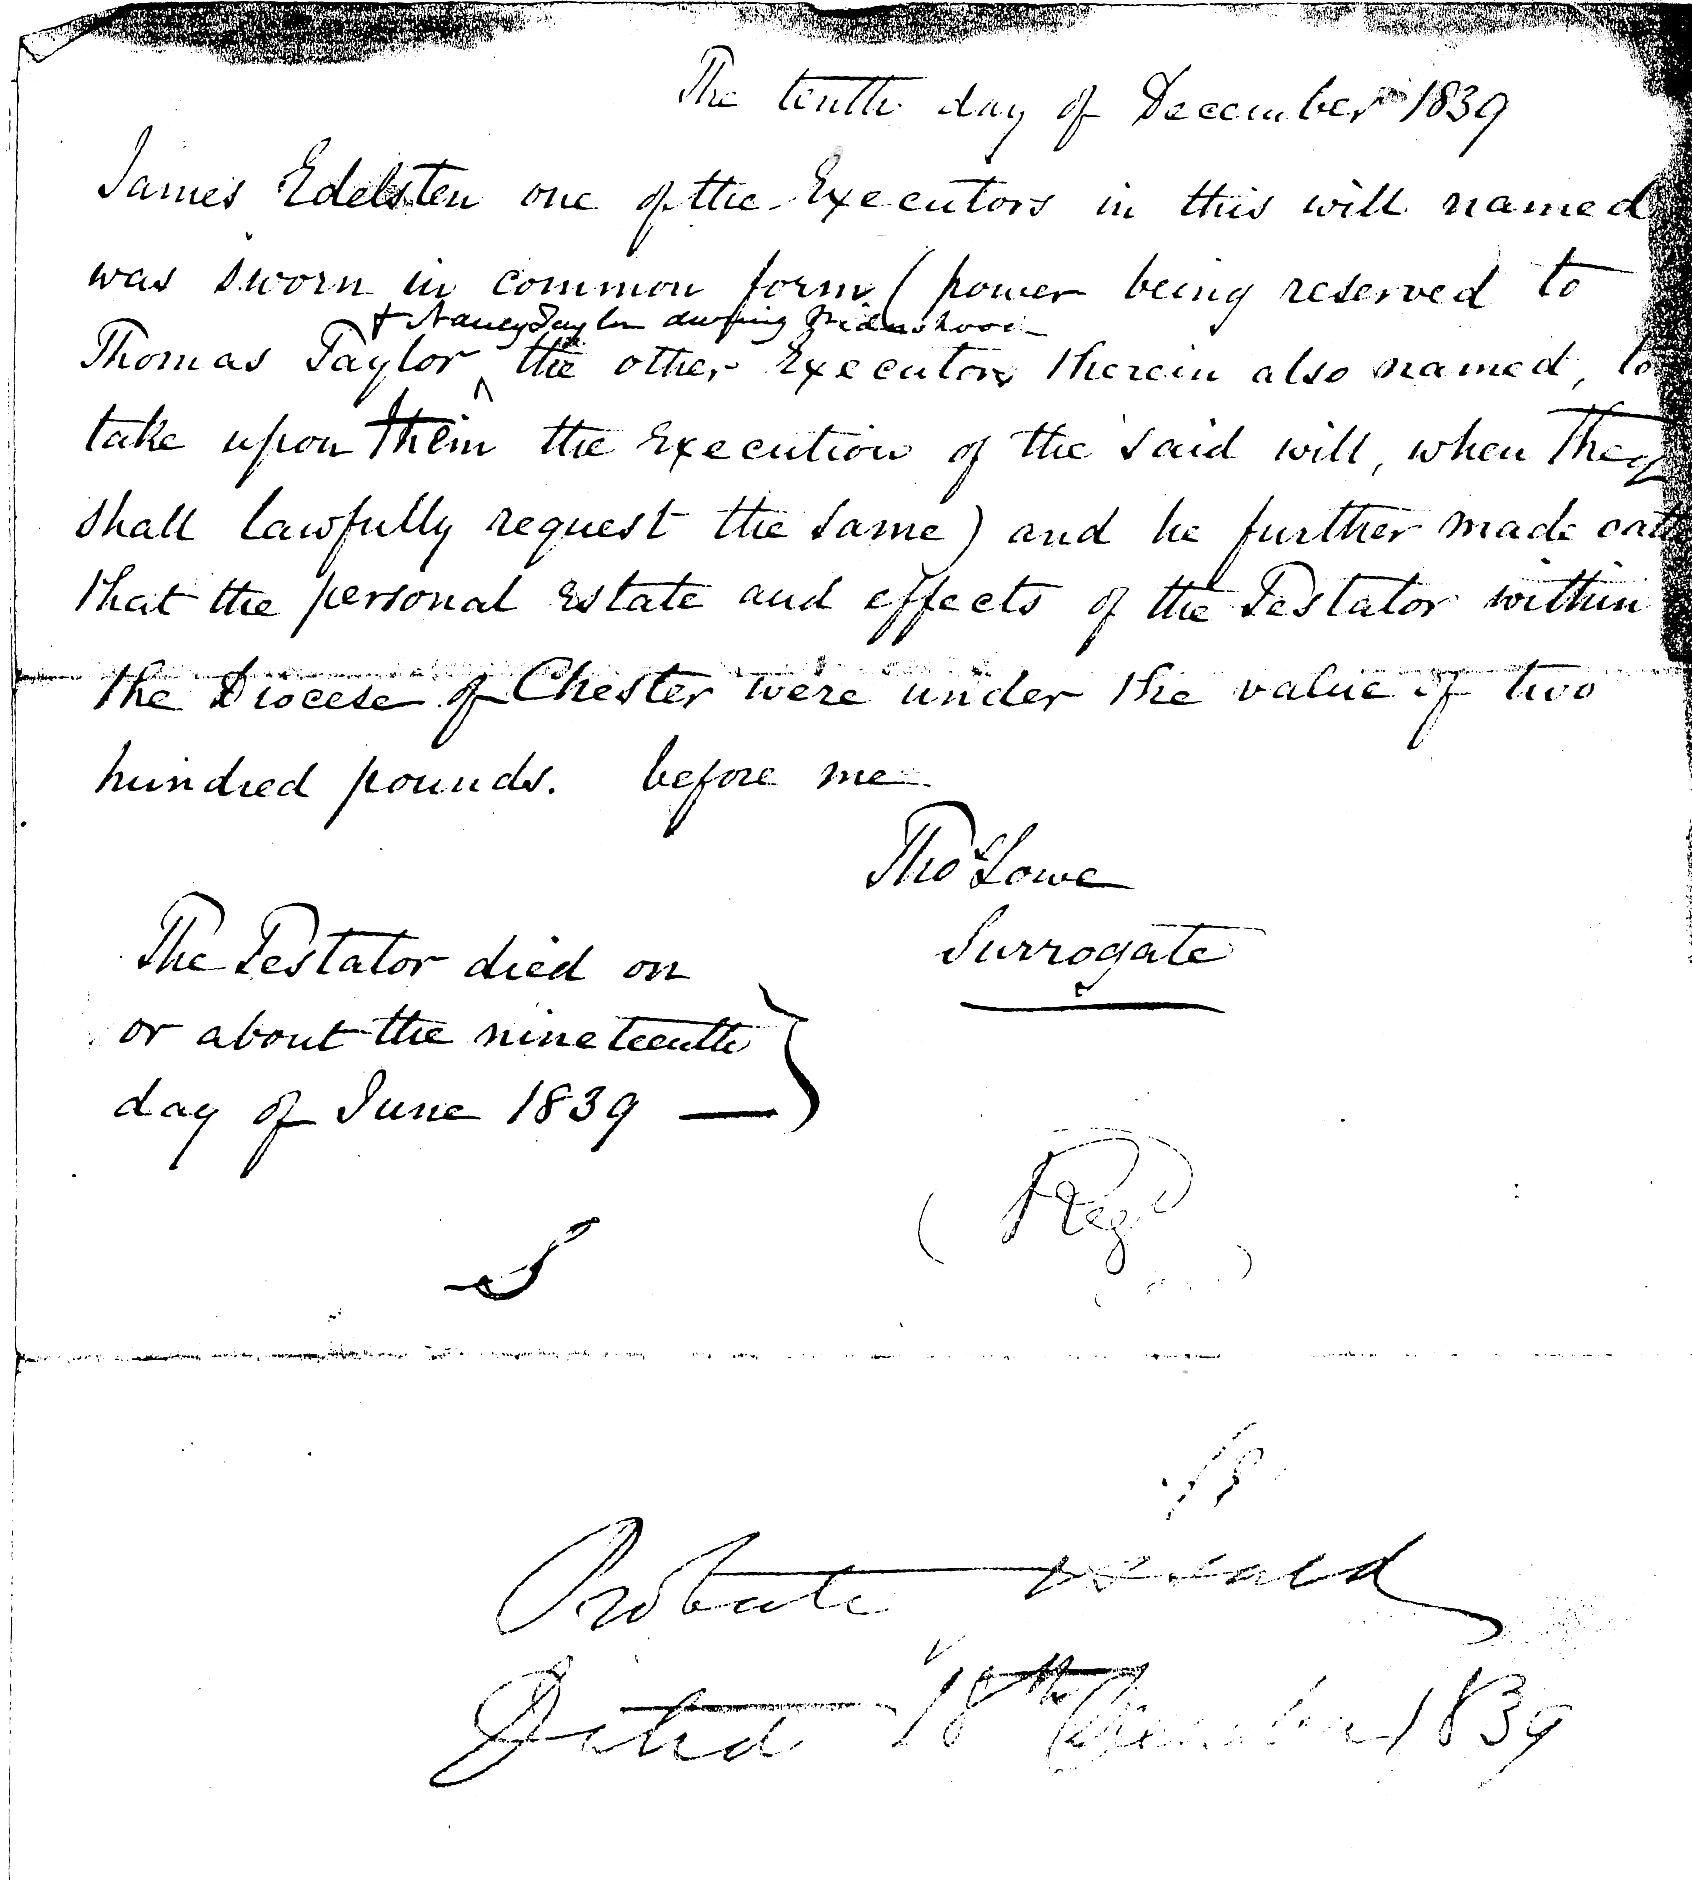 The tenth day of December 1839
James Edelsten one of the Executors in this will named
was sworn in common form (power being reserved to
& Nancy Taylor during Widowhood
Thomas Taylor ^ the other Executors therein also named, to
take upon them the Execution of the said will, when they
shall lawfully request the same) and he further made oath
that the personal Estate and effects of the Testator within
the Diocese of Chester were under the value of two
hundred pounds. before me
Thos Lowe
Surrogate
The Testator died on
or about the nineteenth
day of June 1839 —
Regd
Probate issued
Dated 18th December 1839